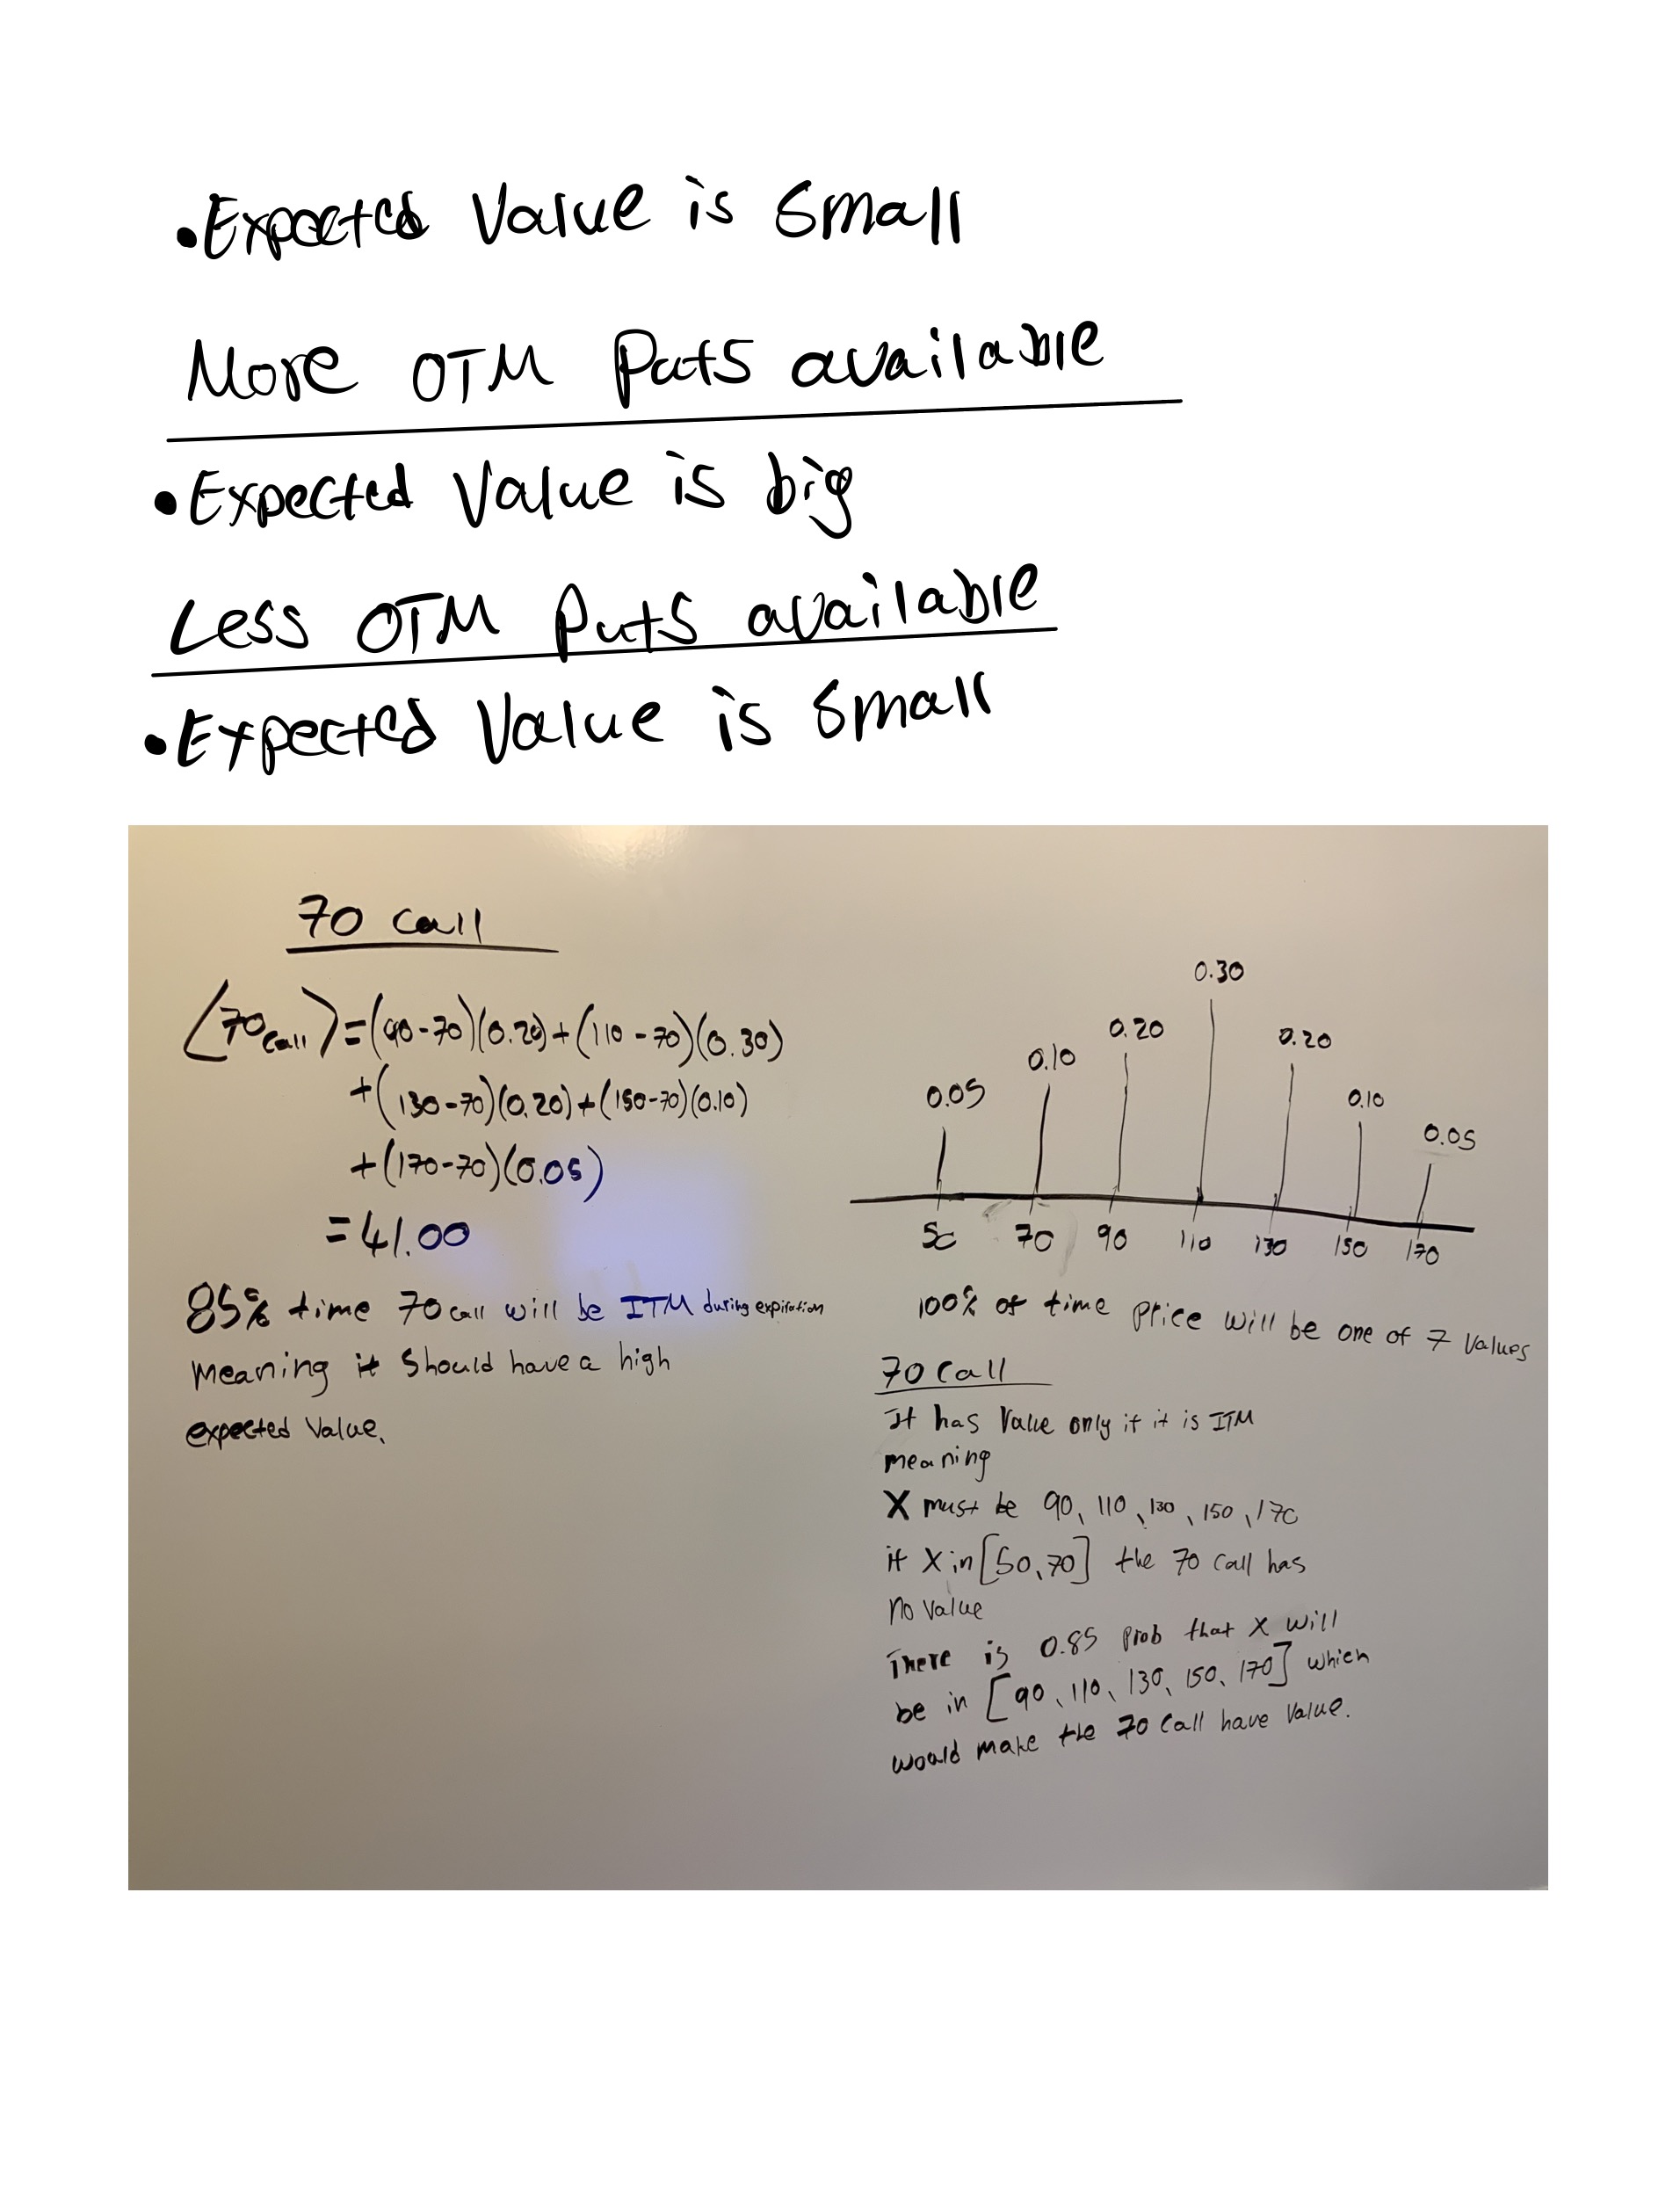 •Expected Value is Small
More OTM Puts available
•Expected Value is big
Less OTM Puts available
•Expected Value is Small
70 Call
⟨70call⟩=(90-70)(0.20)+(110-70)(0.30)
+(130-70)(0.20)+(150-70)(0.10)
+(170-70)(0.05)
=41.00
85% time 70 call will be ITM during expiration
meaning it should have a high
expected Value.
0.05 0.10 0.20 0.30 0.20 0.10 0.05
50 70 90 110 130 150 170
100% of time Price will be one of 7 Values
70 Call
It has Value only if it is ITM
meaning
X must be 90, 110, 130, 150, 170
if X in [50,70] the 70 Call has
no value
There is 0.85 Prob that X will
be in [90, 110, 130, 150, 170] which
would make the 70 Call have Value.